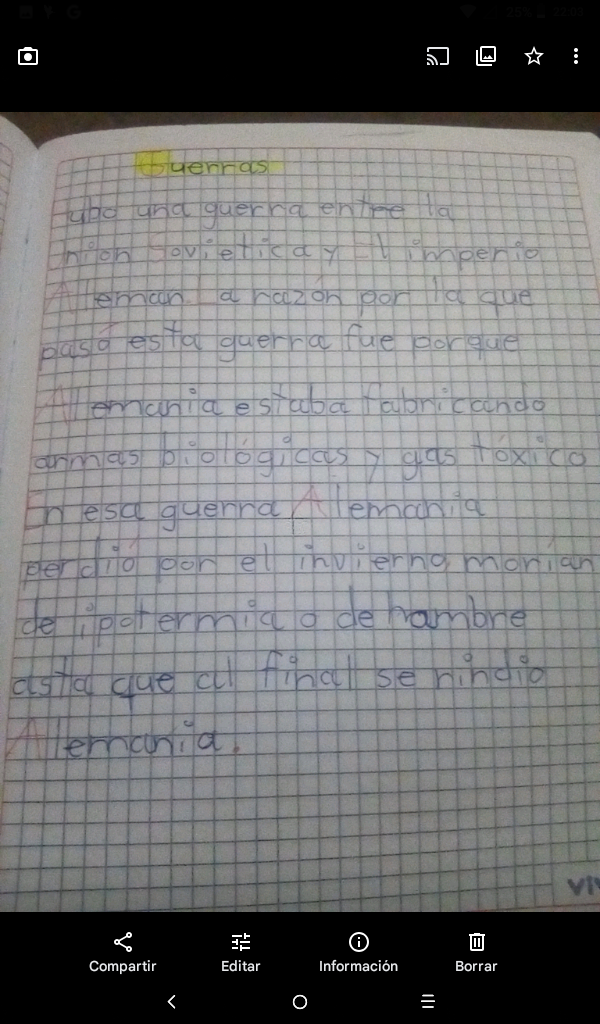 Guerras
tubo una guerra entre la
nion Sovietica y El imperio
Aleman. La razón por la que
pasó esta guerra fue porque
Alemania estaba fabricando
armas biológicas y gas tóxico
En esa guerra Alemania
perdió por el invierno morian
de ipotermia o de hambre
asta que al final se rindio
Alemania.
Compartir
Editar
Información
Borrar